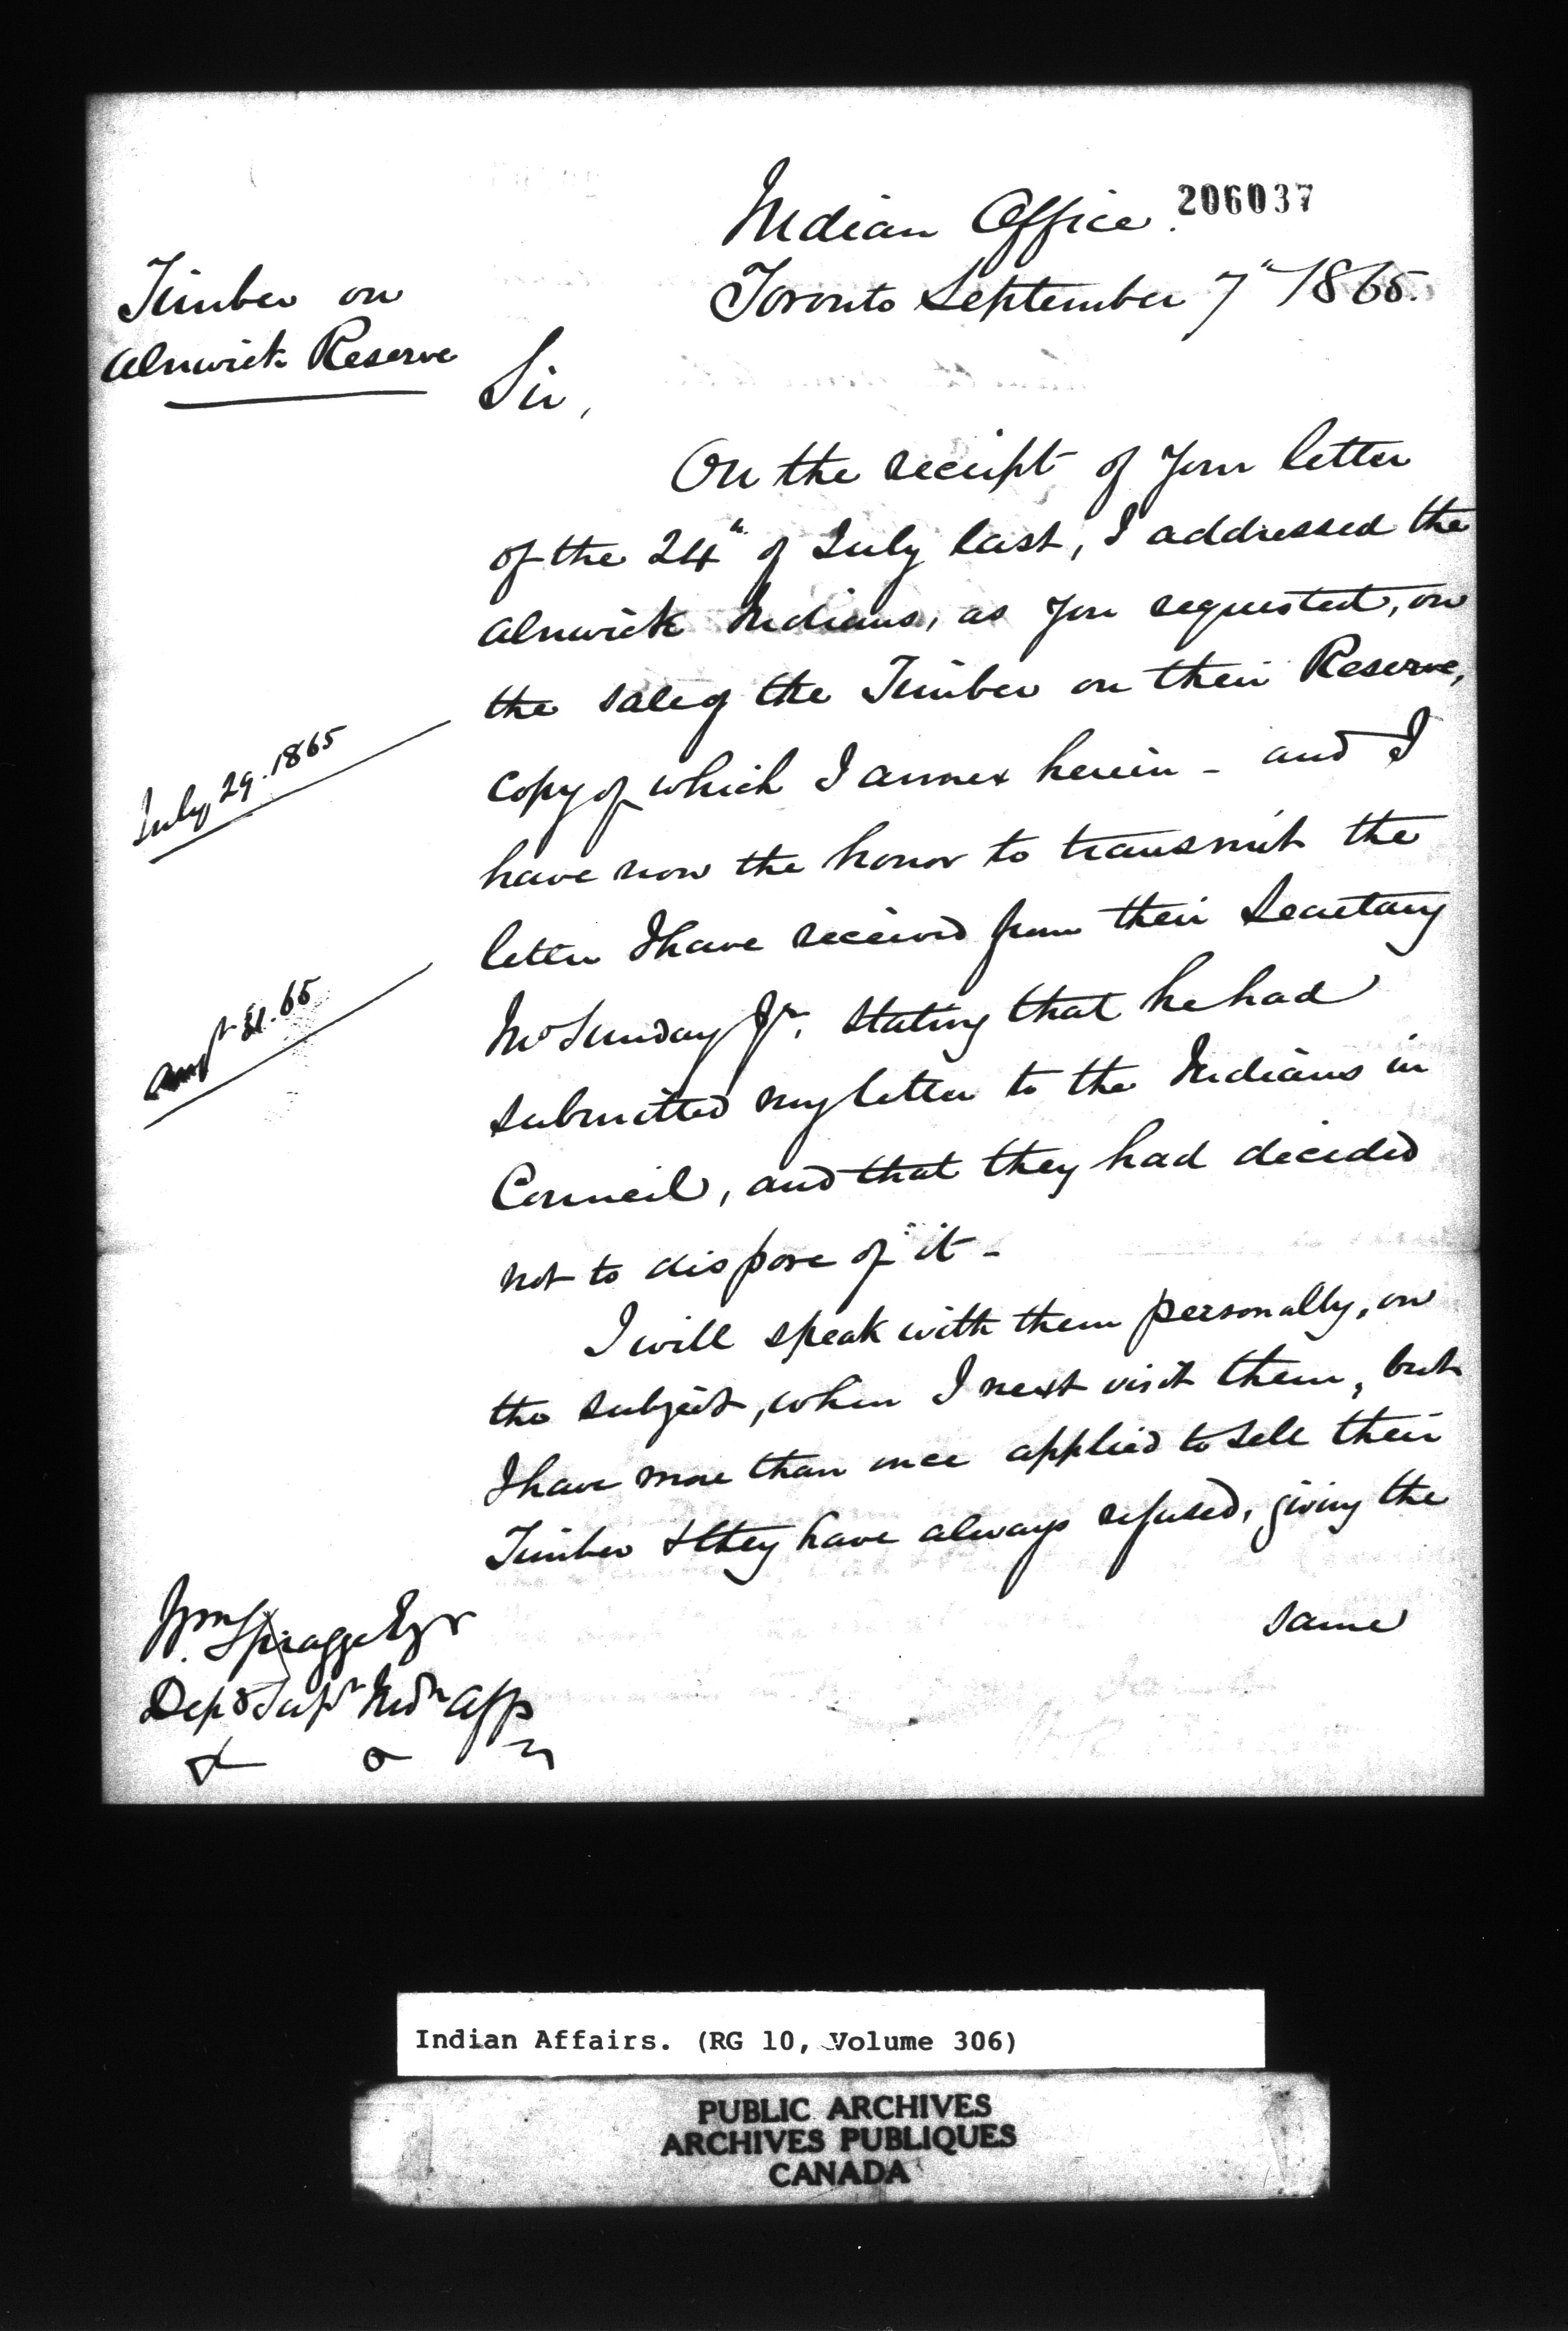 206037
Indian Office.
Toronto September 7th 1865.
Timber on
Alnwick Reserve
Sir,
On the receipt of your letter
of the 24th of July last, I addressed the
Alnwick Indians, as you requested, on
the sale of the Timber on their Reserve,
July 29. 1865
copy of which I annex herein - and I
have now the honor to transmit the
letter I have received from their Secretary
Augt 31. 65
Mr Sunday Jr. stating that he had
submitted my letter to the Indians in
Council, and that they had decided
not to dispose of it -
I will speak with them personally, on
the subject, when I next visit them, but
I have more than once applied to sell their
Timber & they have always refused, giving the
same
Wm Spragge Esqr
Depy Supt Indn Aff
& &
Indian Affairs. (RG 10, Volume 306)
PUBLIC ARCHIVES
ARCHIVES PUBLIQUES
CANADA